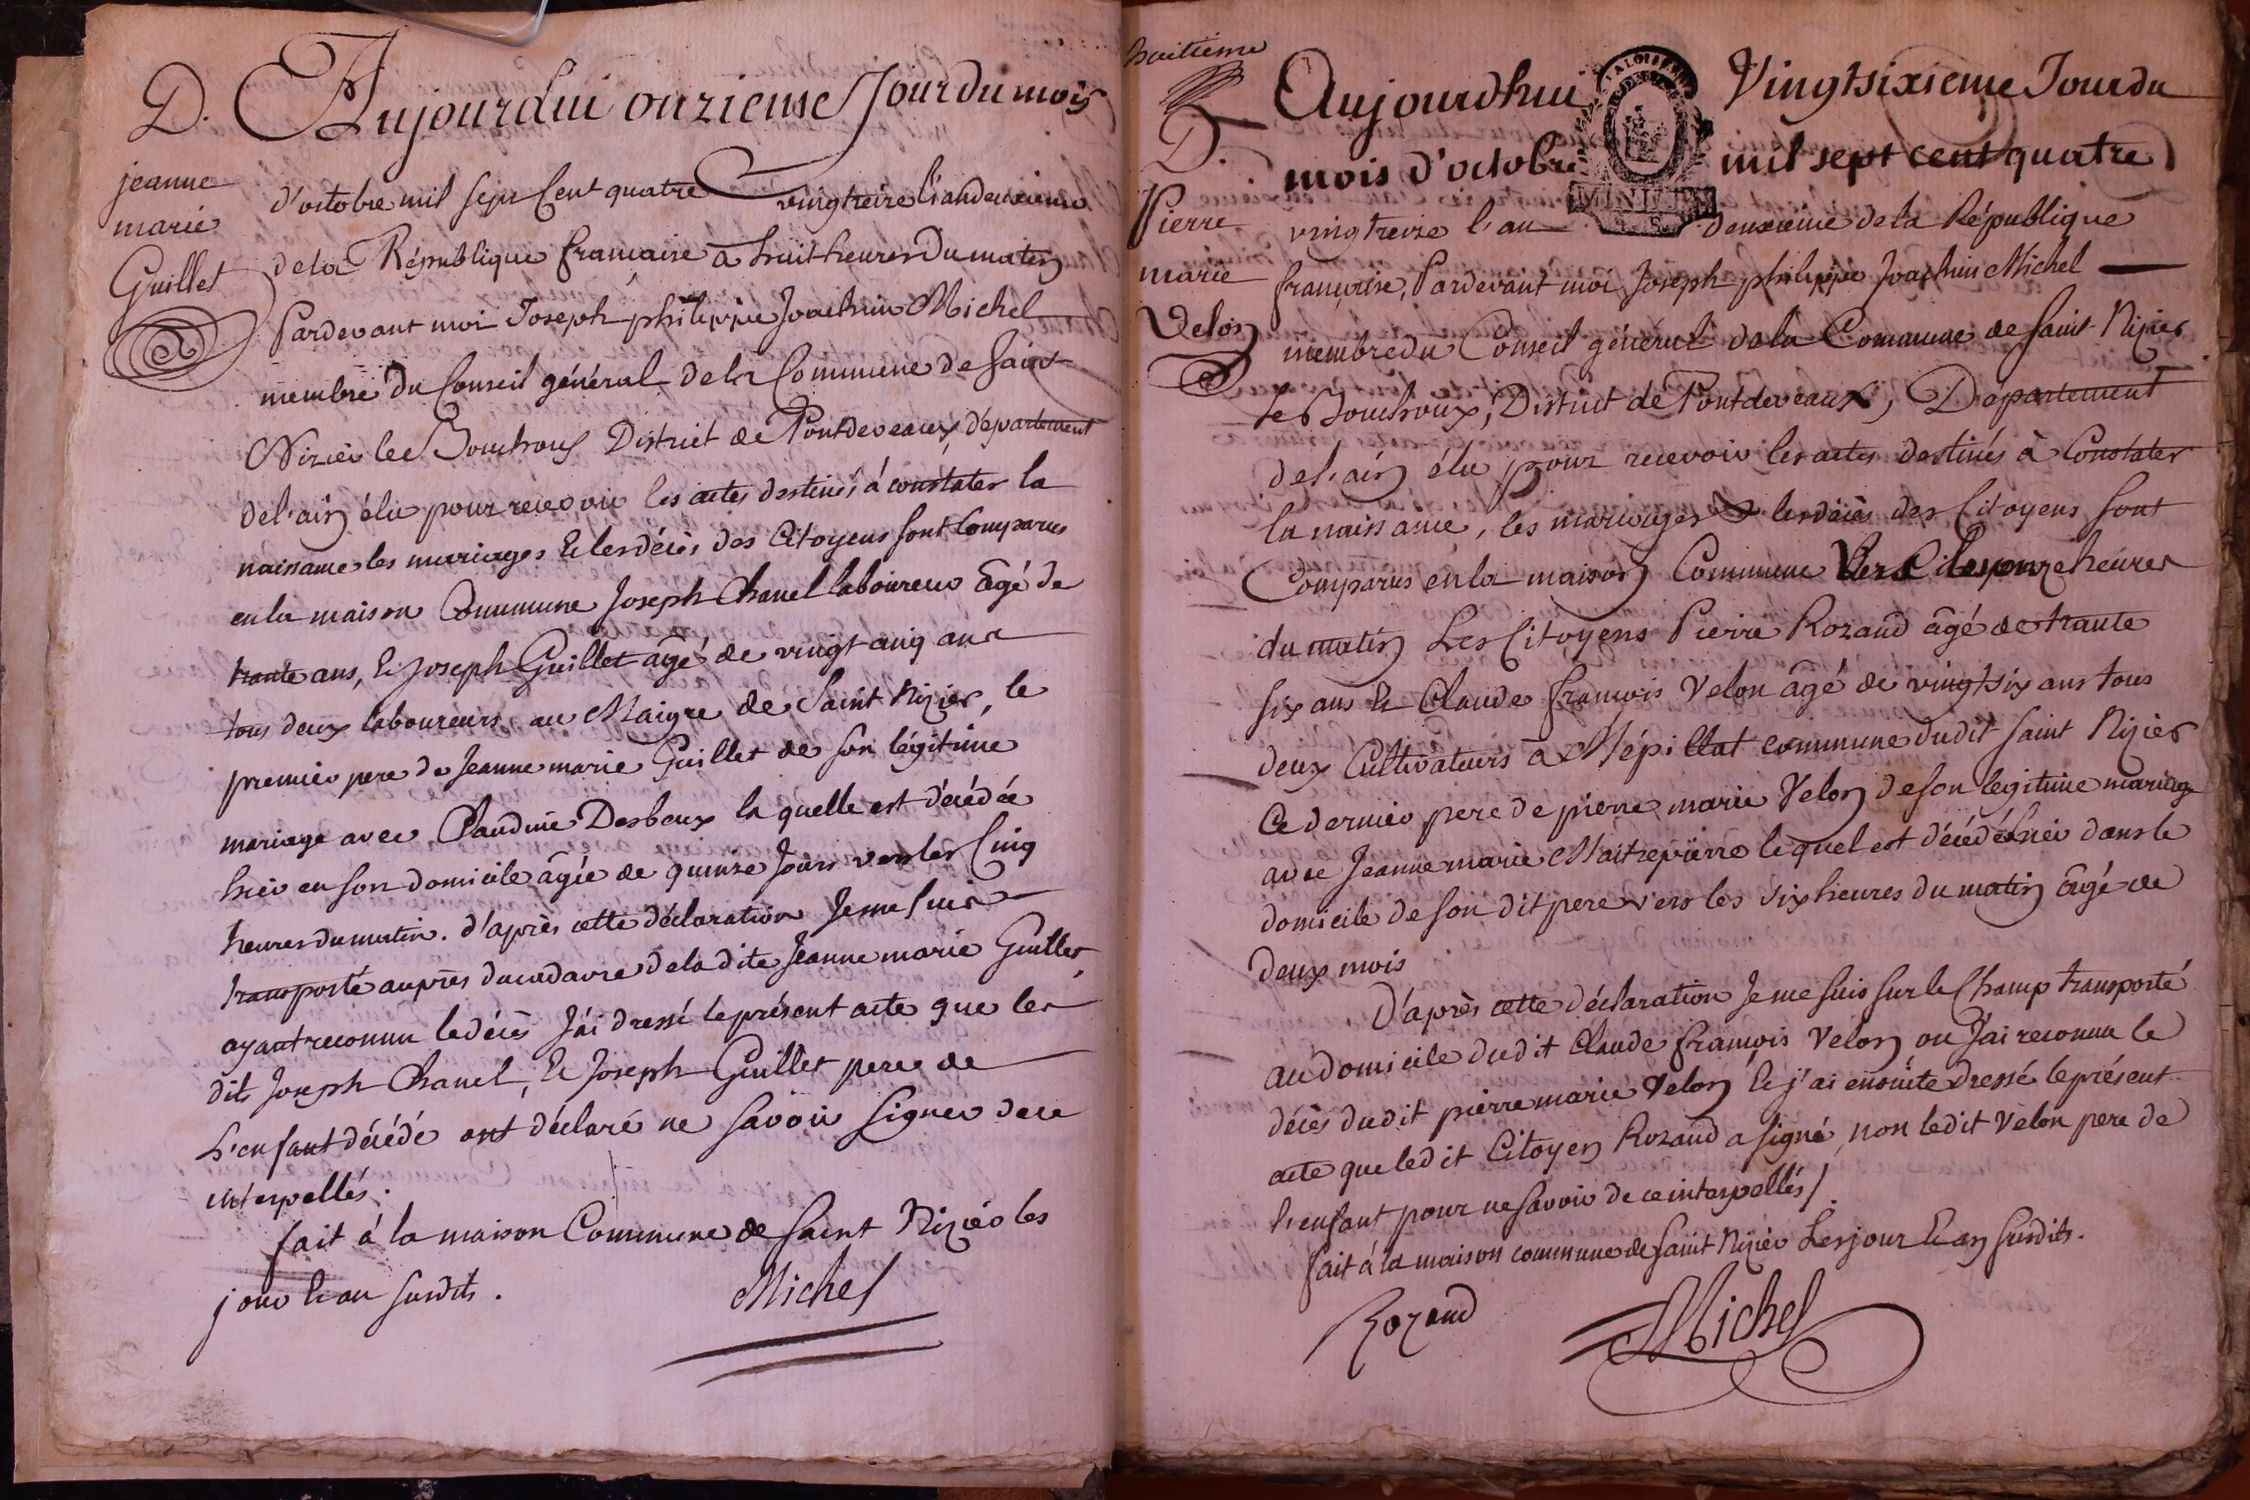 D. Aujourdui onzieme Jour du mois
jeanne
marie
Guillet
d'octobre mil sept Cent quatre vingtreize l'an deuxieme
de la République francaise à huit heures Du matin
Pardevant moi Joseph philippe Joachim Michel
membre Du Conseil général de la Commune de Saint
Nizier le Bouchoux District de Pontdeveaux, département
de l'ain élu pour recevoir les actes destinés à constater la
naissance les mariages & les décès des Citoyens sont Comparus
en la maison Commune Joseph Chanel laboureur âgé de
trante ans, & Joseph Guillet âgé de vingt cinq ans
tous deux laboureurs au Maigre de Saint Nizier, le
premier pere de Jeanne marie Guillet de son légitime
mariage avec Claudine Desboux la quelle est décédée
hier en son domicile âgée de quinze Jours vers les Cinq
heures du matin. d'après cette déclaration Je me suis
transporté auprès du cadavre de la dite Jeanne marie Guillet,
ayant reconnu le décès J'ai dressé le présent acte que les
dits Joseph Chanel, & Joseph Guillet pere de
L'enfant décédé ont déclaré ne savoir signer de ce
interpellés.
fait à la maison Commune de Saint Nizier les
jour & an susdits.
Michel
huitieme
D.
Pierre
marie
Velon
Aujourdhui Vingtsixieme Jour du
mois d'octobre mil sept cent quatre
vingtreize l'an deuxieme de la République
française, Pardevant moi Joseph philippe Joachim Michel
membre du Conseil général de la Commune de Saint Nizier
le Bouchoux, District de Pontdeveaux, Département
de l'ain élu pour recevoir les actes destinés à Constater
la naissance, les mariages & les décès des Citoyens sont
Comparus en la maison Commune Vers les onze heures
du matin Les Citoyens Pierre Rozand âgé de trante
six ans & Claude francois Velon âgé de vingtsix ans tous
deux Cultivateurs à Mépillat commune dudit Saint Nizier
Ce dernier pere de pierre marie Velon de son legitime mariage
avec Jeanne marie Maitrepierre le quel est décédé hier dans le
domicile de son dit pere vers les six heures du matin âgé de
deux mois
D'après cette déclaration Je me suis sur le Champ transporté
au domicile dudit Claude francois Velon ou J'ai reconnu le
décès dudit pierre marie Velon & j'ai ensuite dressé le présent
acte que ledit Citoyen Rozand a signé, non ledit Velon pere de
l'enfant pour ne savoir de ce interpellés/.
fait à la maison commune de Saint Nizier Les jour & an susdits.
Rozand Michel